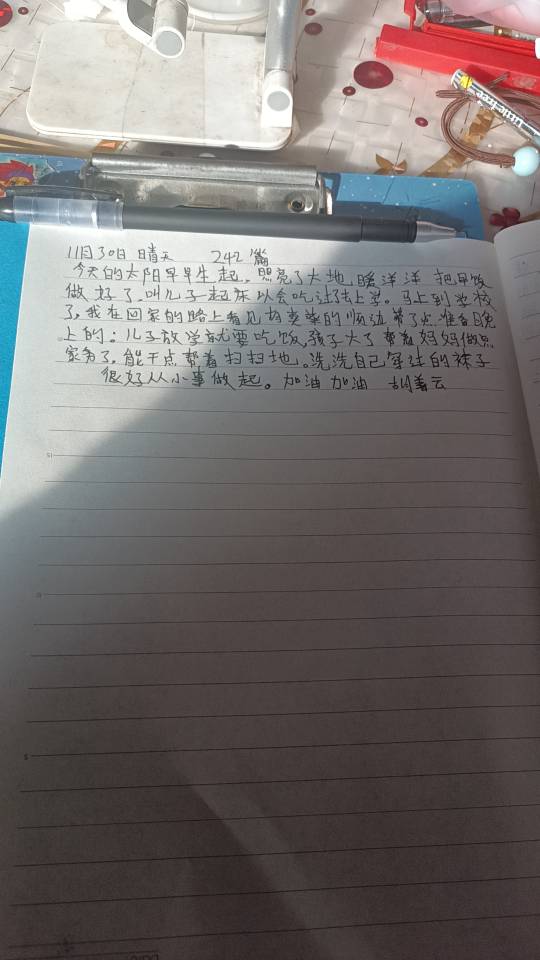 11月30日 晴天 242篇
今天的太阳早早生起.照亮了大地,暖洋洋 把早饭
做好了.叫儿子起床以会吃过去上学。马上到学校
了,我在回家的路上看见有卖菜的顺边带了点.准备晚
上的:儿子放学就要吃饭,孩子大了帮着妈妈做点
家务了,能干点帮着扫扫地。洗洗自己穿过的袜子
很好从小事做起。加油加油 胡善云
littletree